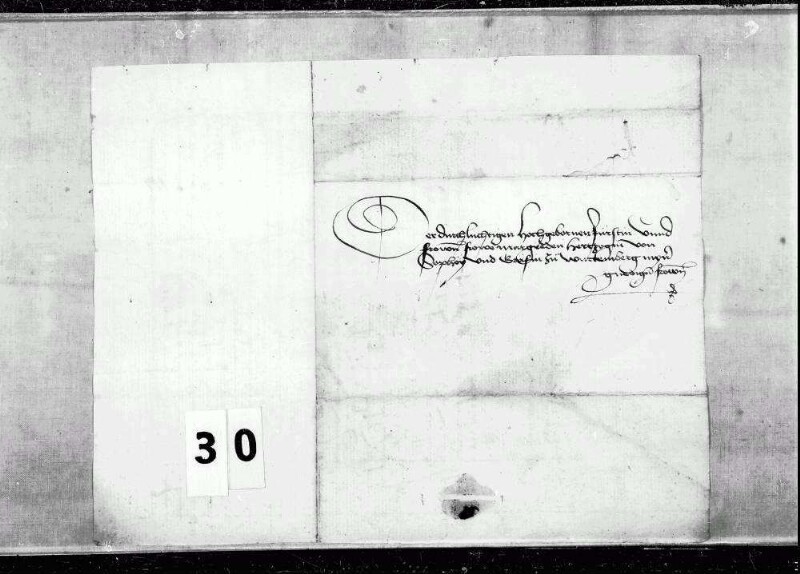 Der durchluchtigen Hochgebornen fürstin Vnnd
frowen frowe margreden Hertzogin von
Sophoy vnd Grefin zů Wirttemberg myner
gnedigen frowen
30